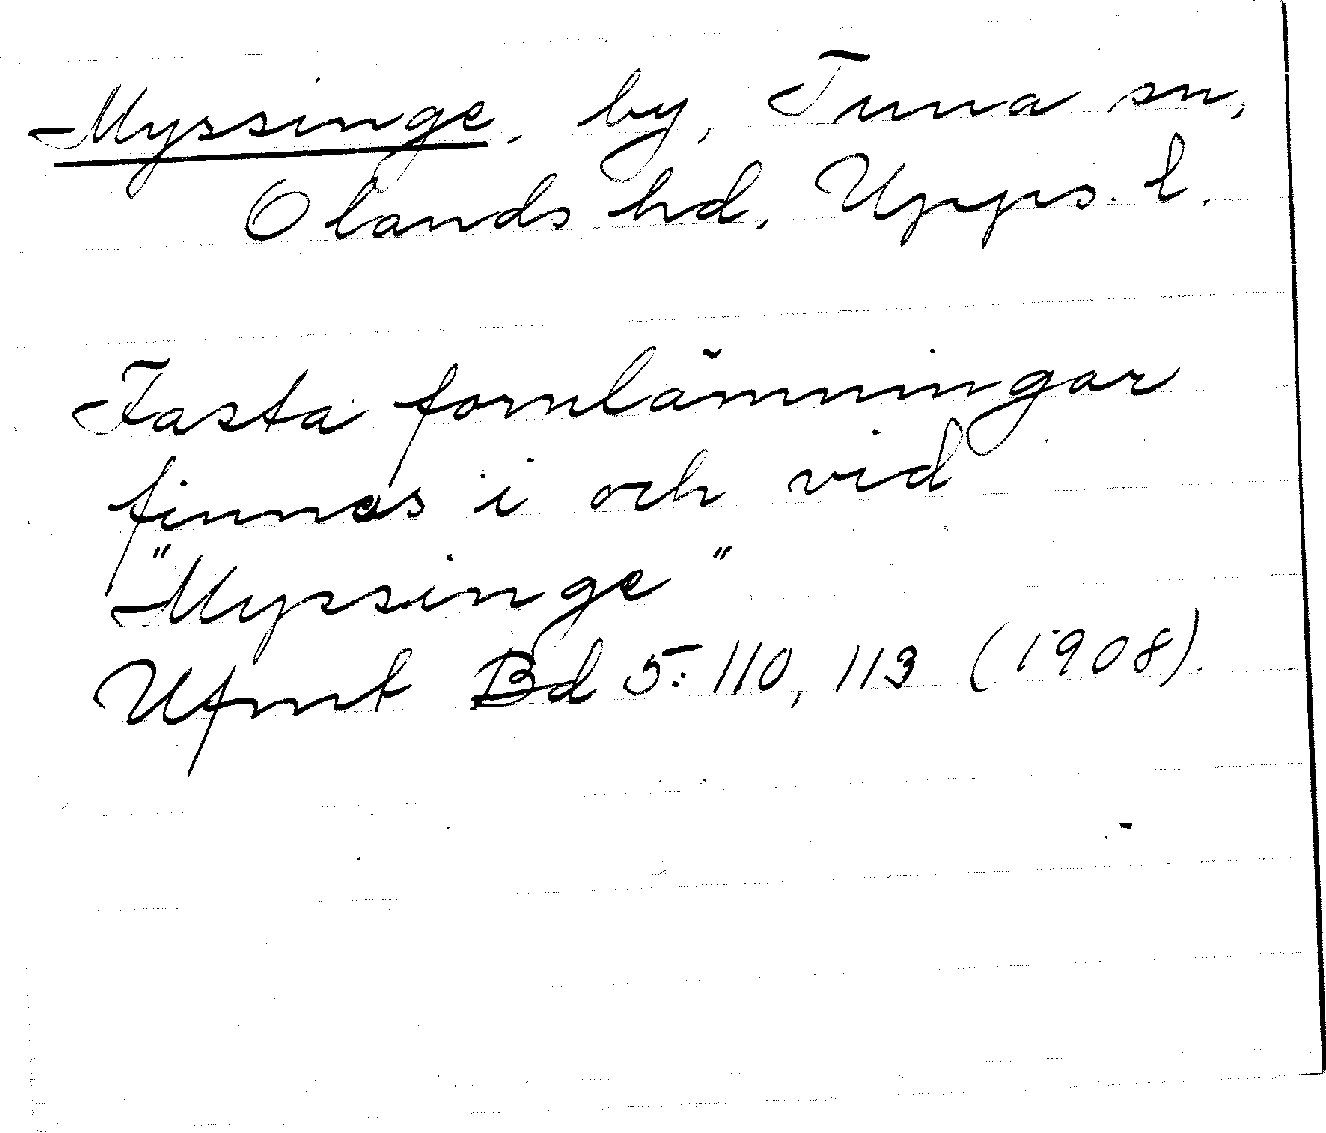 Myssinge, by, Tuna sn,
Olands hd, Upps. l.
Fasta fornlämningar
finnas i och vid
"Myssinge"
Ufmt Bd 5: 110, 113 (1908).